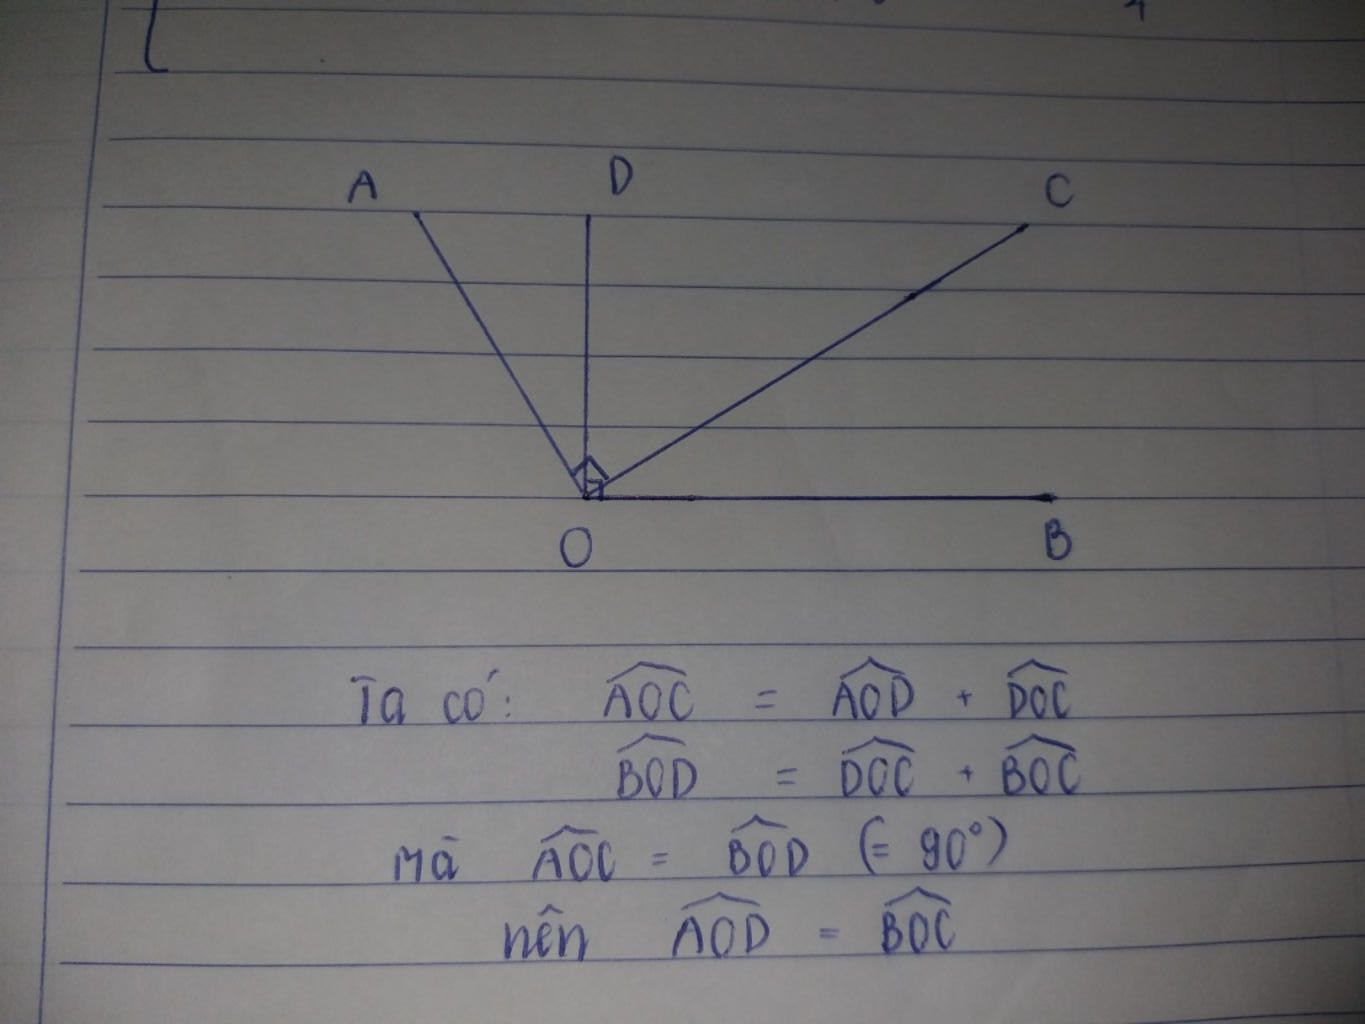 A D C
O B
Ta có: AOC = AOD + DOC
BOD = DOC + BOC
mà AOC = BOD (= 90°)
nên AOD = BOC